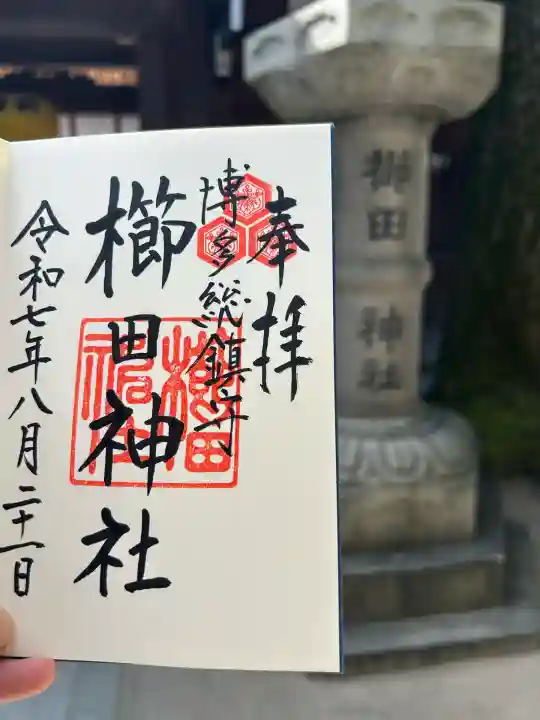 奉拝
博多総鎮守
櫛田神社
令和七年八月二十一日
櫛田神社
櫛田神社